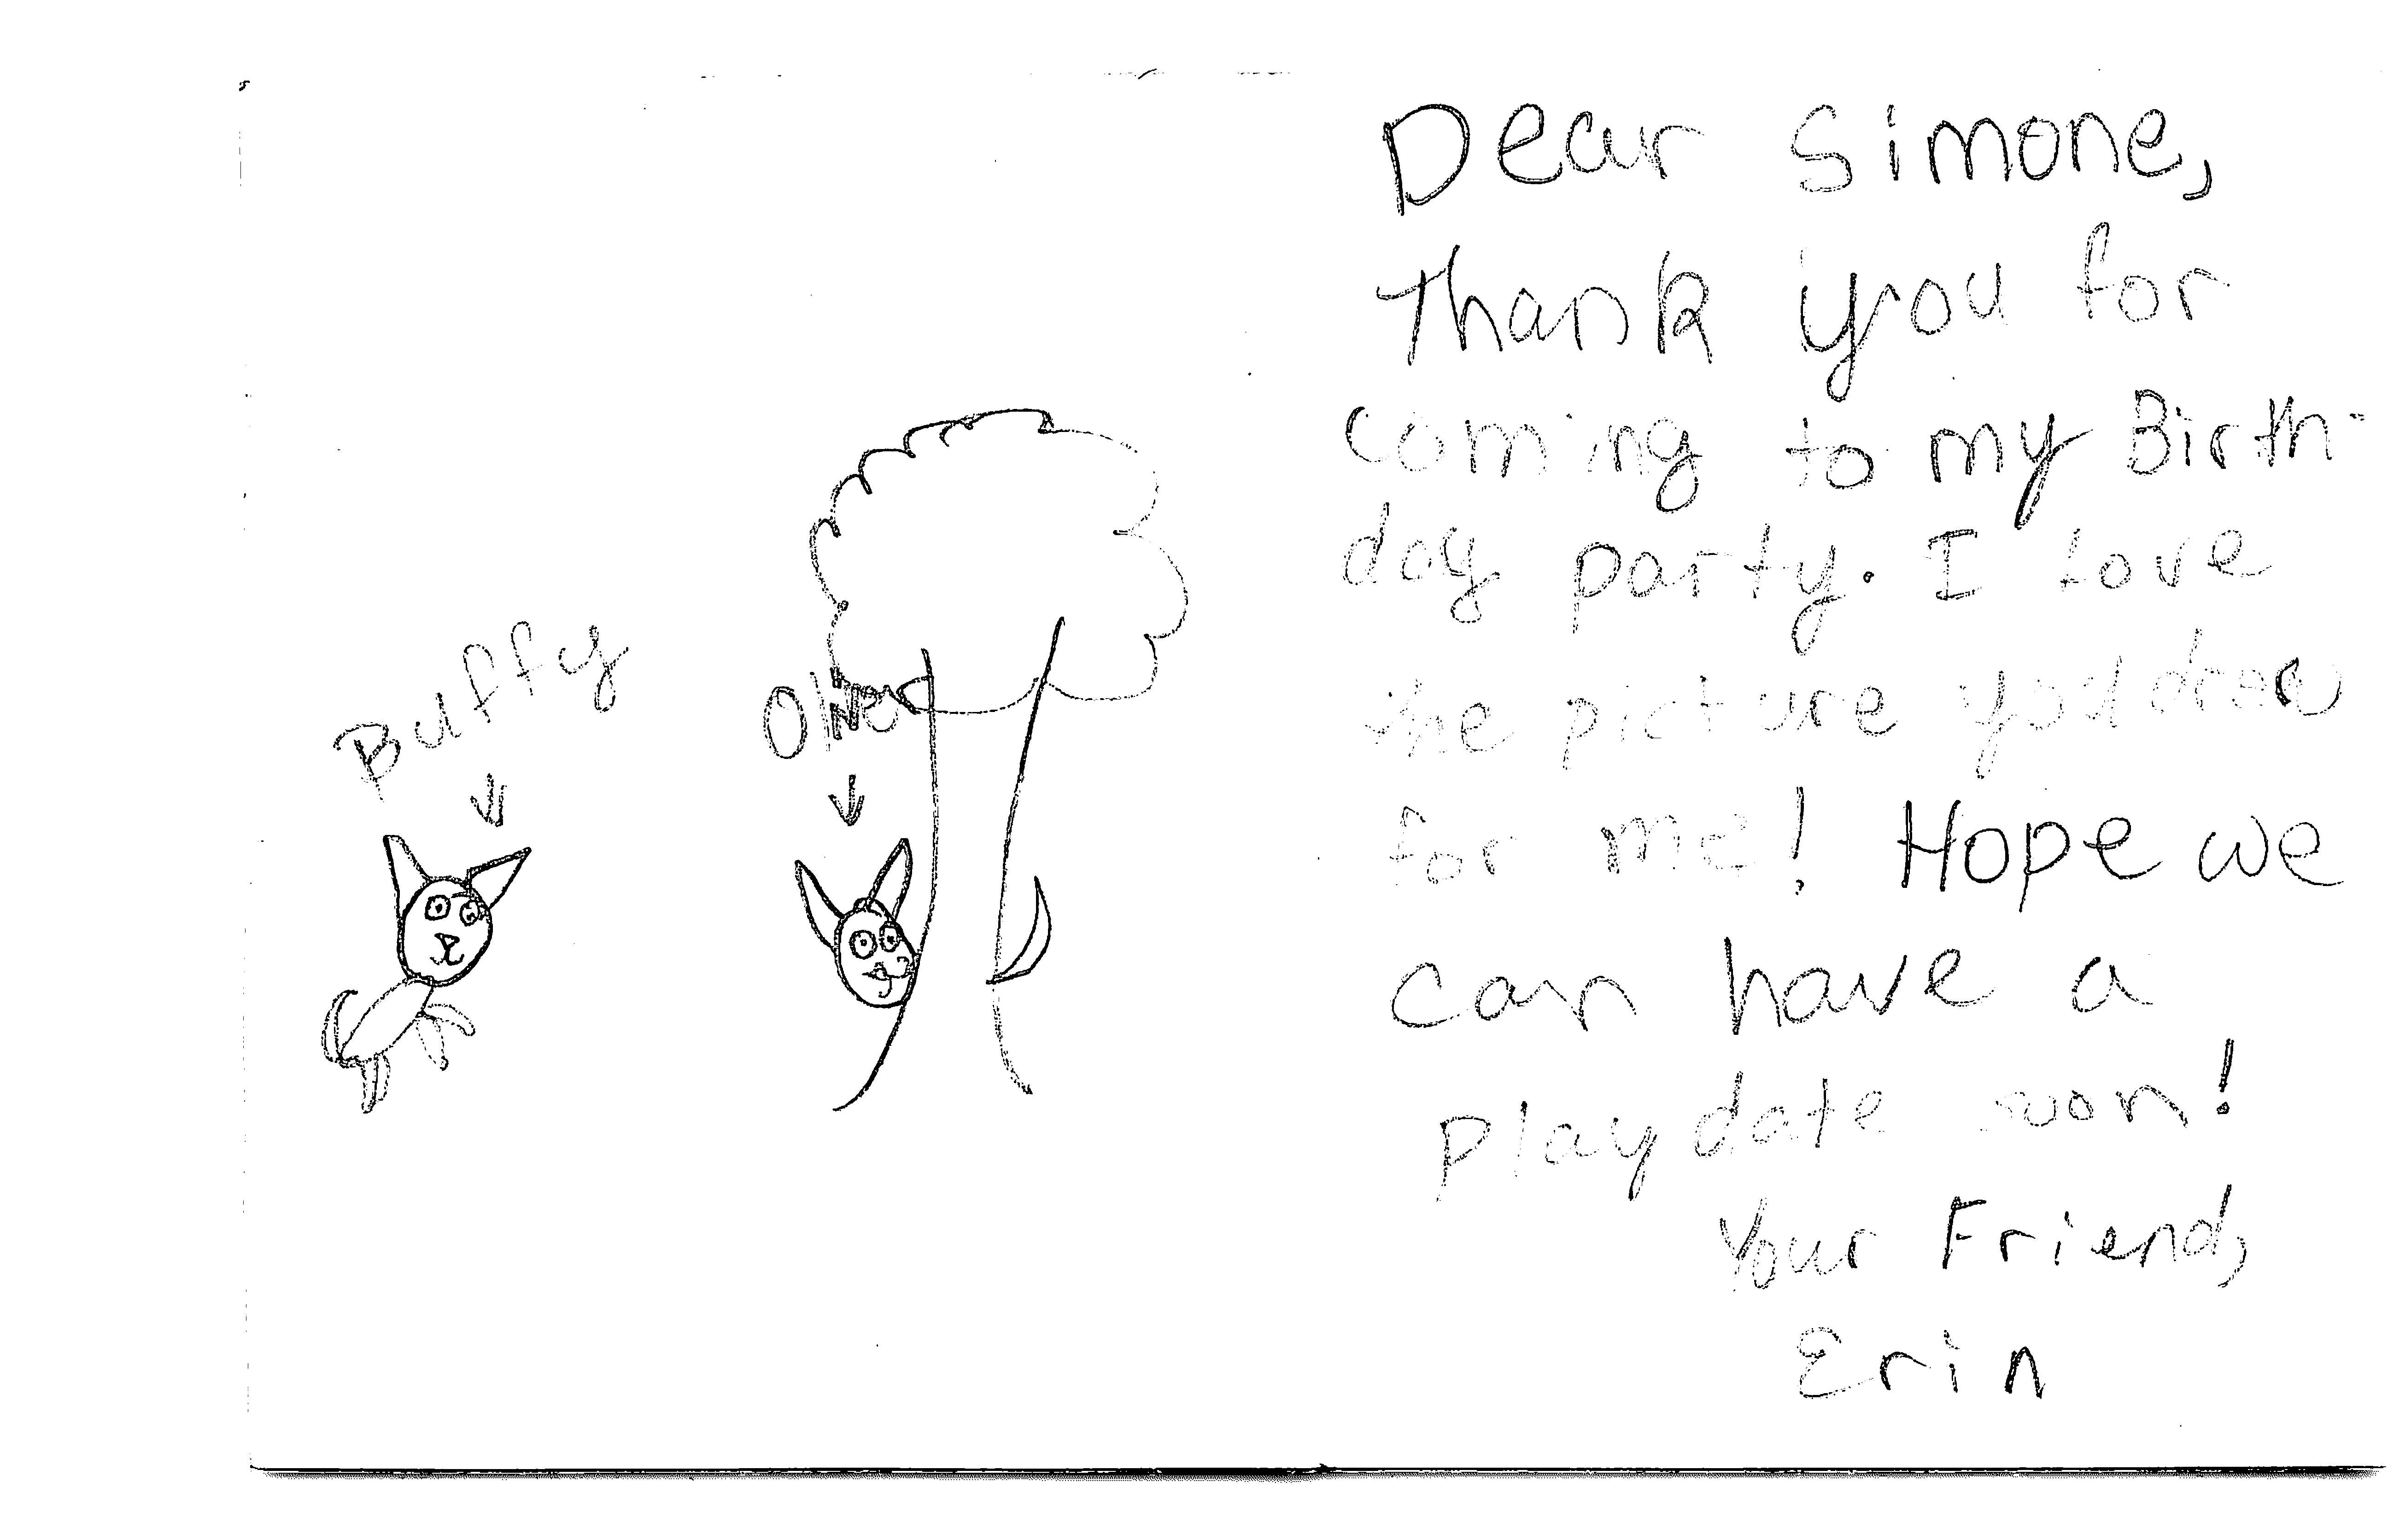 Buffy
Oliver
Dear Simone,
Thank you for
coming to my Birth-
day party. I Love
the picture you drew
for me! Hope we
can have a
Play date soon!
Your Friend,
Erin